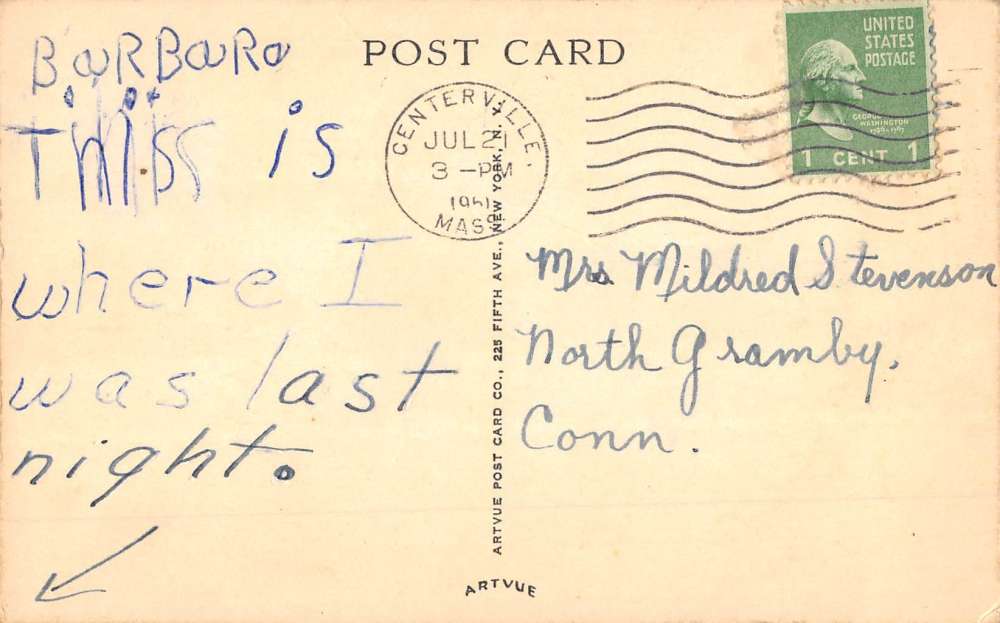 POST CARD
BarBara
This is
where I
was last
night.
CENTERVILLE,
JUL 21
3 -PM
1951
MASS.
UNITED
STATES
POSTAGE
GEORGE
WASHINGTON
1789-1797
1 CENT 1
Mrs Mildred Stevenson
North Gramby,
Conn.
ARTVUE POST CARD CO., 225 FIFTH AVE., NEW YORK, N. Y.
ARTVUE